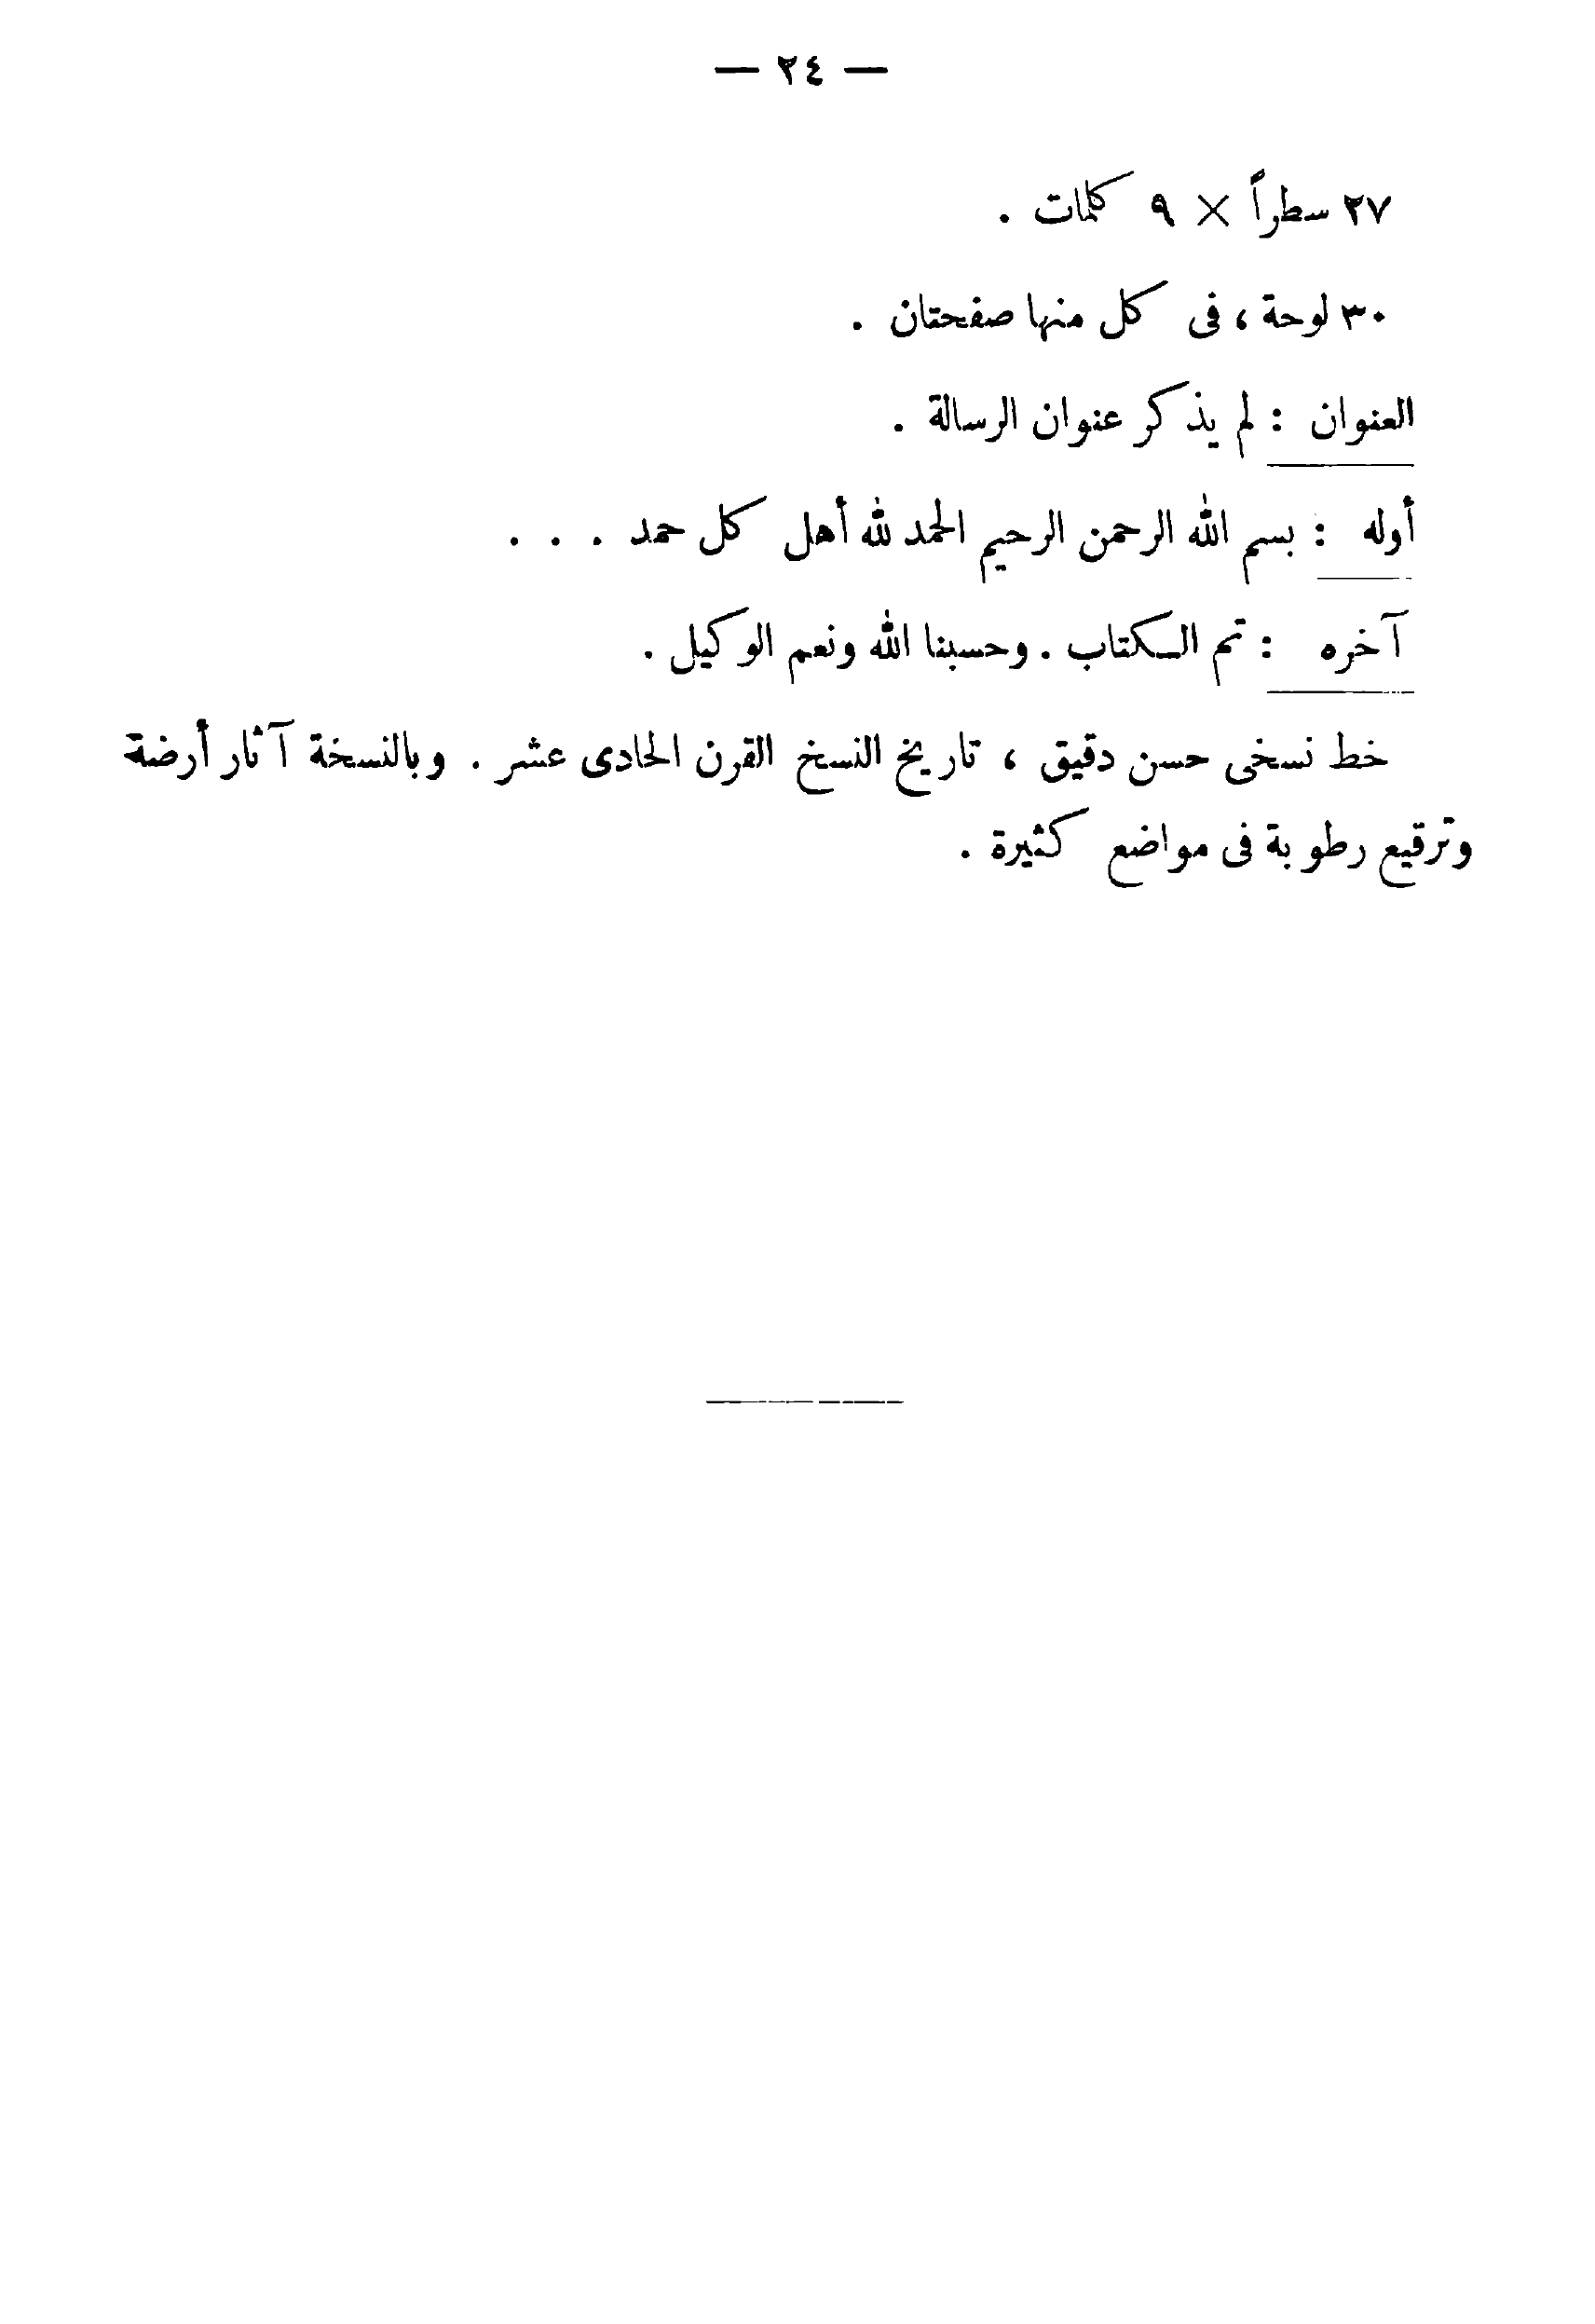 — ٢٤ —
٢٧ سطراً × ٩ كلمات .
٣٠ لوحة ، فى كل منها صفحتان .
العنوان : لم يذكر عنوان الرسالة .
أوله : بسم الله الرحمن الرحيم الحمد لله أهل كل حمد . . .
آخره : تم الكتاب . وحسبنا الله ونعم الوكيل .
خط نسخى حسن دقيق ، تاريخ النسخ القرن الحادى عشر . وبالنسخة آثار أرضة
وترقيع رطوبة فى مواضع كثيرة .